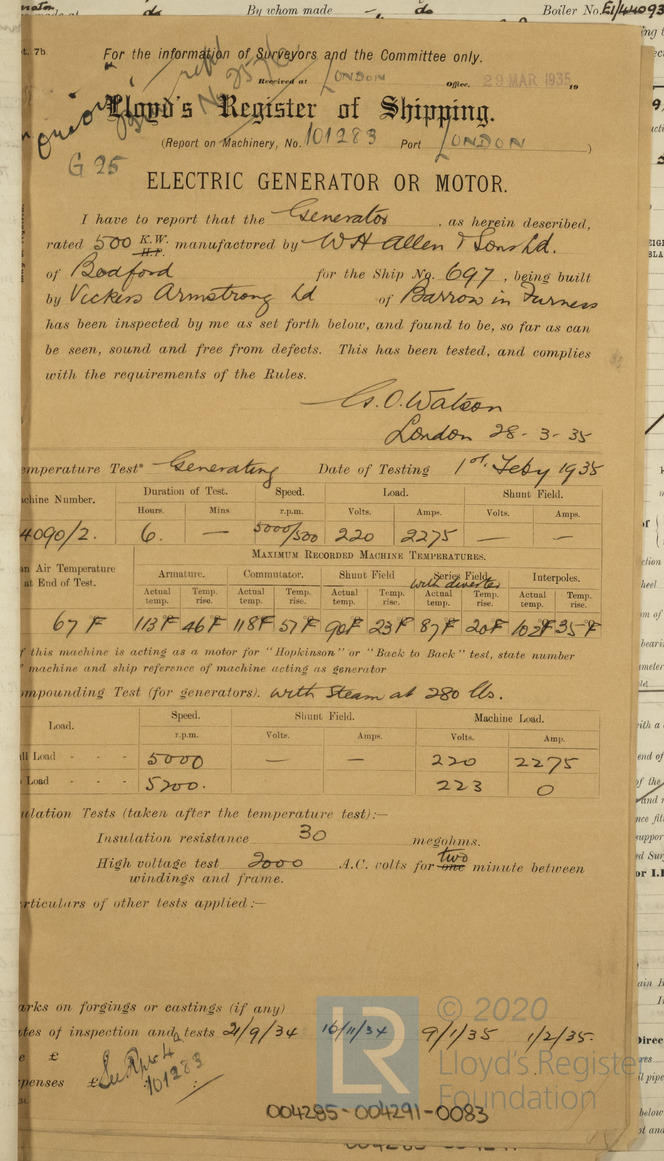 By whom made do Boiler No. E1/44093
t. 7b
For the information of Surveyors and the Committee only.
Received at LONDON Office. 29 MAR 1935 19
Lloyd's Register of Shipping.
(Report on Machinery, No. 101283 Port LONDON )
G 25
ELECTRIC GENERATOR OR MOTOR.
I have to report that the Generator, as herein described,
rated 500 K.W. H.P. manufactured by W H Allen & Sons Ld.
of Bedford for the Ship No. 697, being built
by Vickers Armstrong Ld of Barrow in Furness
has been inspected by me as set forth below, and found to be, so far as can
be seen, sound and free from defects. This has been tested, and complies
with the requirements of the Rules.
G. O. Watson
London 28-3-35
emperature Test* Generating Date of Testing 1st Feby 1935
chine Number. Duration of Test. Speed. Load. Shunt Field.
Hours. Mins r.p.m. Volts. Amps. Volts. Amps.
4090/2. 6. — 5000/500 220 2275 — —
n Air Temperature at End of Test. MAXIMUM RECORDED MACHINE TEMPERATURES.
Armature. Commutator. Shunt Field Series Field with diverter Interpoles.
Actual temp. Temp. rise. Actual temp. Temp. rise. Actual temp. Temp. rise. Actual temp. Temp. rise. Actual temp. Temp. rise.
67 F 113°F 46°F 118°F 51°F 90°F 23°F 87°F 20°F 102°F 35°F
f this machine is acting as a motor for "Hopkinson" or "Back to Back" test, state number
machine and ship reference of machine acting as generator
mpounding Test (for generators). with Steam at 280 lbs.
Load. Speed. Shunt Field. Machine Load.
r.p.m. Volts. Amps. Volts. Amp.
ll Load - - - 5000 — — 220 2275
Load - - - 5200. 223 0
ulation Tests (taken after the temperature test):—
Insulation resistance 30 megohms.
High voltage test 2000 A.C. volts for one two minute between
windings and frame.
rticulars of other tests applied:—
arks on forgings or castings (if any)
tes of inspection and tests 21/9/34 16/11/34 9/1/35 1/2/35.
e £
See Rpt 4a
penses £
101283
LR
© 2020
Lloyd's Register
Foundation
004285-004291-0083